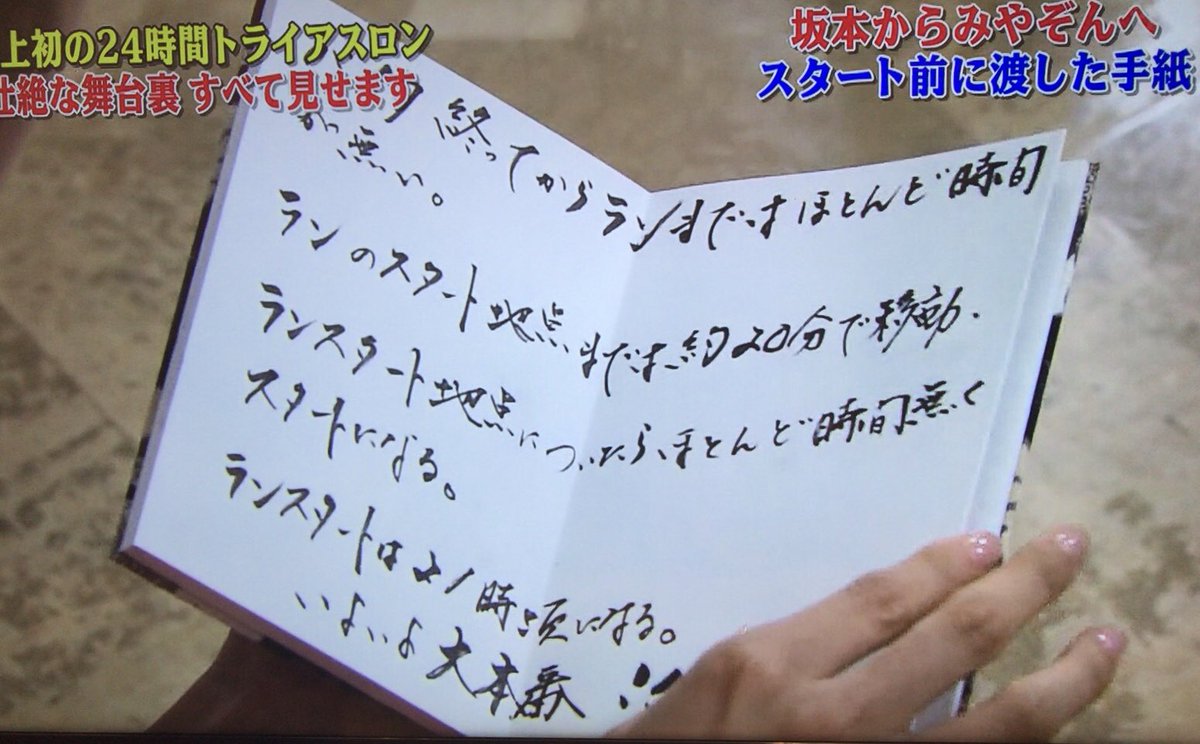 上初の24時間トライアスロン
壮絶な舞台裏 すべて見せます
坂本からみやぞんへ
スタート前に渡した手紙
終ってからランまではほとんど時間
が無い。
ランのスタート地点までは、約20分で移動.
ランスタート地点についたら、ほとんど時間無く
スタートになる。
ランスタートは21時頃になる。
いよいよ大本番!!